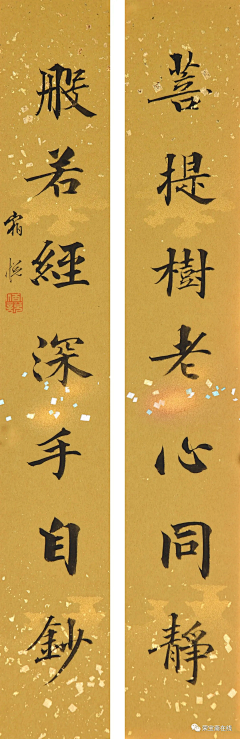 菩提樹老心同靜
般若經深手自鈔